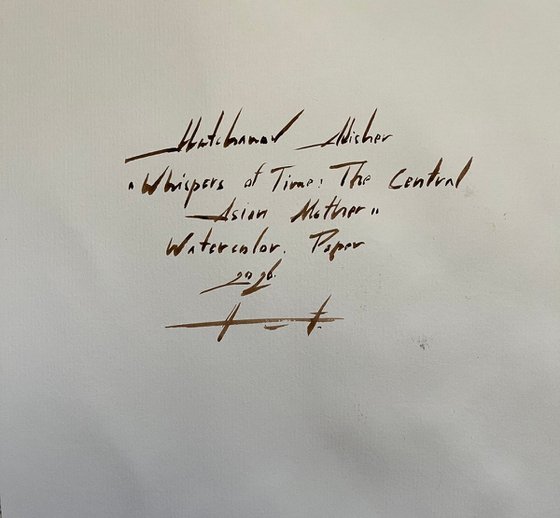 Alisher
"Whispers of Time: The Central
Asian Mother"
Watercolor. Paper
2026.